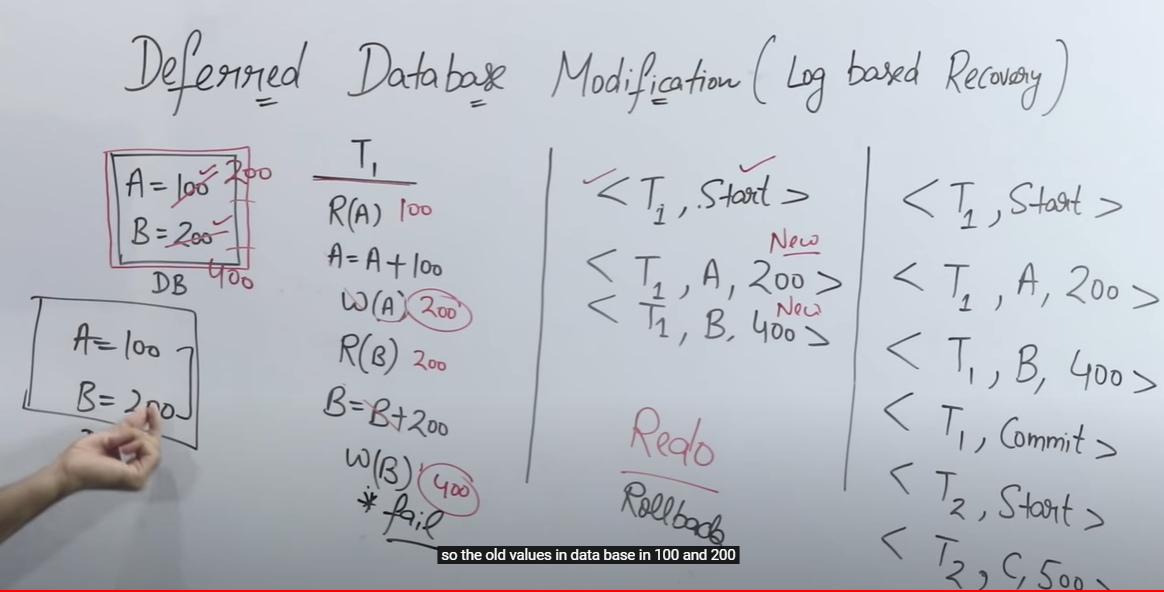 Deferred Database Modification (Log based Recovery)
A = 100 200
B = 200
400
DB
A = 100
B = 200
T1
R(A) 100
A = A + 100
W(A) 200
R(B) 200
B = B + 200
W(B) 400
* fail
< T1, Start >
New
< T1, A, 200 >
New
< T1, B, 400 >
Redo
Rollback
< T1, Start >
< T1, A, 200 >
< T1, B, 400 >
< T1, Commit >
< T2, Start >
< T2, C, 500 >
so the old values in data base in 100 and 200